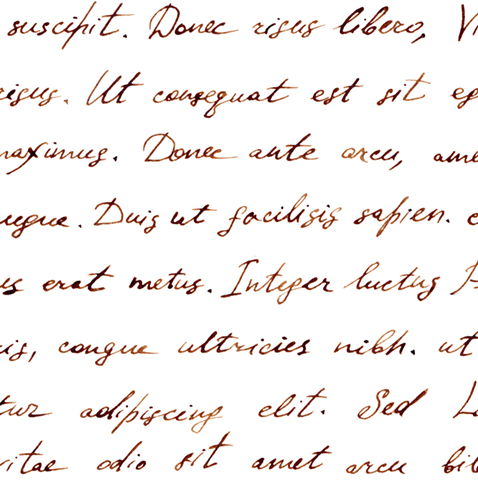 suscipit. Donec risus libero,
risus. Ut consequat est sit
maximus. Donec ante arcu,
augue. Duis ut facilisis sapien.
erat metus. Integer luctus
congue ultricies nibh. ut
adipiscing elit. Sed
vitae odio sit amet arcu